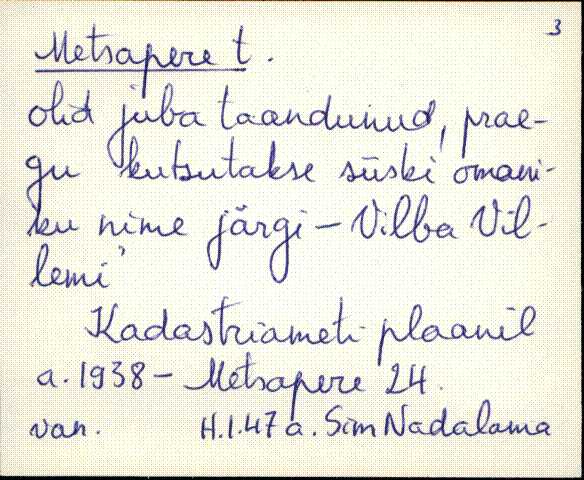 3
Metsapere t.
olid juba taandunud, prae-
gu kutsutakse siiski omani-
ku nime järgi – Vilba Vil-
lemi
Kadastriameti plaanil
a. 1938 – Metsapere 24.
van. H.I.47 a. Sim Nadalama